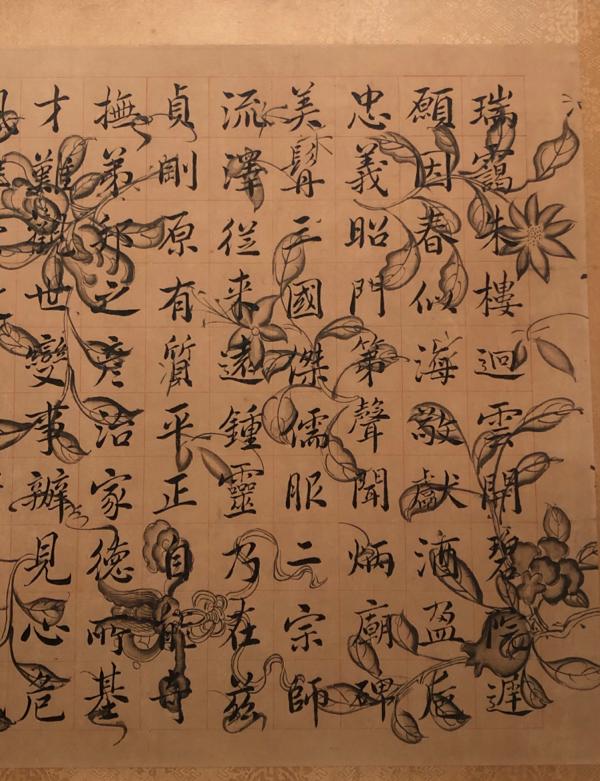 瑞靄朱樓迥雲開碧遲
願因春似海敬獻酒盈卮
忠義昭門第聲聞炳廟碑
美髯三國傑儒服二宗師
流澤從来遠鍾靈乃在茲
貞剛原有質平正自能奇
撫弟邦之彥治家德所基
才難觀世變事辦見心危